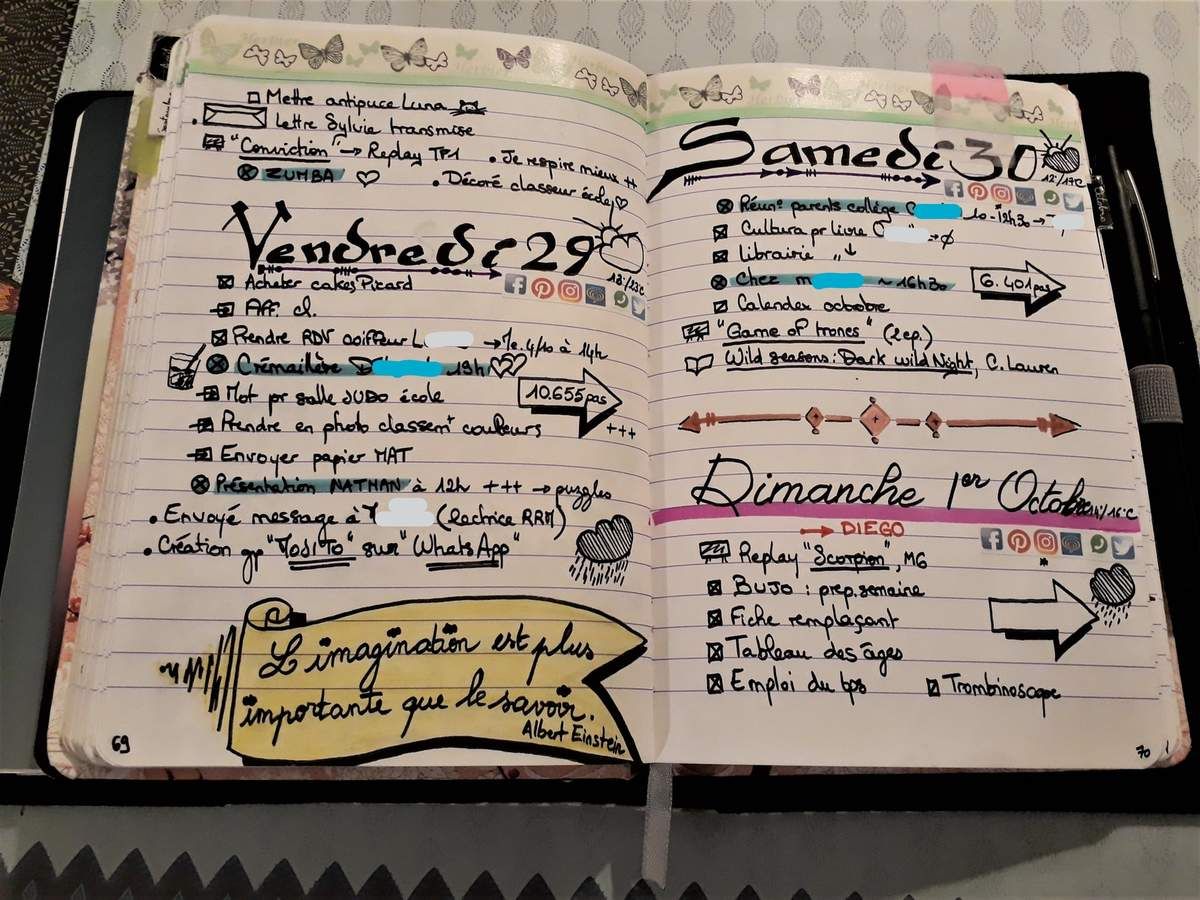 Mettre antipuce Luna
Lettre Sylvie transmise
"Conviction" → Replay TF1
• Je respire mieux ++
ZUMBA
• Décoré classeur école
Vendredi 29
Acheter cakes Picard
Aff. cl.
Prendre RDV coiffeur L → Me. 4/10 à 14h
Crémaillère D 19h
Mot pr salle JUDO école
10.655 pas
+++
Prendre en photo classemt couleurs
Envoyer papier MAT
Présentation NATHAN à 12h +++ → puzzles
• Envoyé message à (lectrice RRM)
• Création gp "MOJITO" sur "WhatsApp"
L'imagination est plus
importante que le savoir.
Albert Einstein
69
Samedi 30
12°/17°C
Réuno parents collège 10-12h30 →
Cultura pr livre → ø
Librairie " ↓
Chez m ~ 16h30
6.401 pas
Calendex octobre
"Game of trones" (2ep.)
Wild seasons: Dark wild Night, C. Lauren
Dimanche 1er Octobre
→ DIEGO
Replay "Scorpion", M6
BUJO : prep. semaine
Fiche remplaçant
Tableau des âges
Emploi du tps
Trombinoscope
70